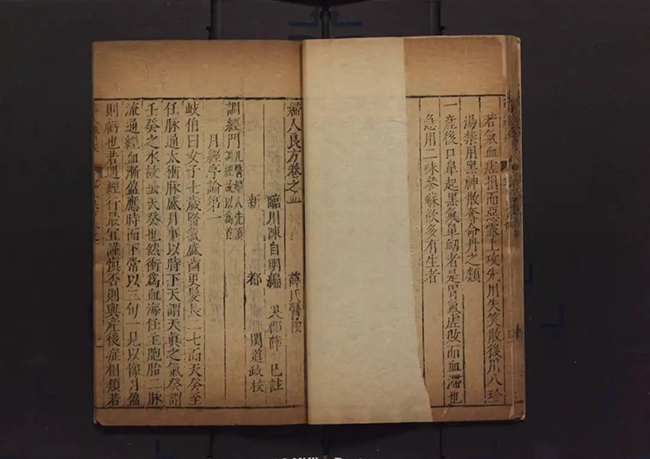 若氣血虛損而惡露上攻先用失笑散後用八珍
湯禁用黑神散奪命丹之類
一產後口鼻起黑氣鼻衂者是胃氣虛敗而血滯也
急用二味參蘇飲多有生者
婦人良方卷之 薛氏醫按
臨川陳自明編 吳郡薛 己註
新 都 閔道政校
調經門 凡醫婦人先須調經故以為首
月經序論第一
岐伯曰女子七歲腎氣盛齒更髮長二七而天癸至
任脉通太衝脉盛月事以時下天謂天眞之氣癸謂
壬癸之水故云天癸也然衝爲血海任主胞胎二脉
流通經血漸盈應時而下常以三旬一見以像月盈
則虧也若遇經行最宜謹慎否則與產後症相類若